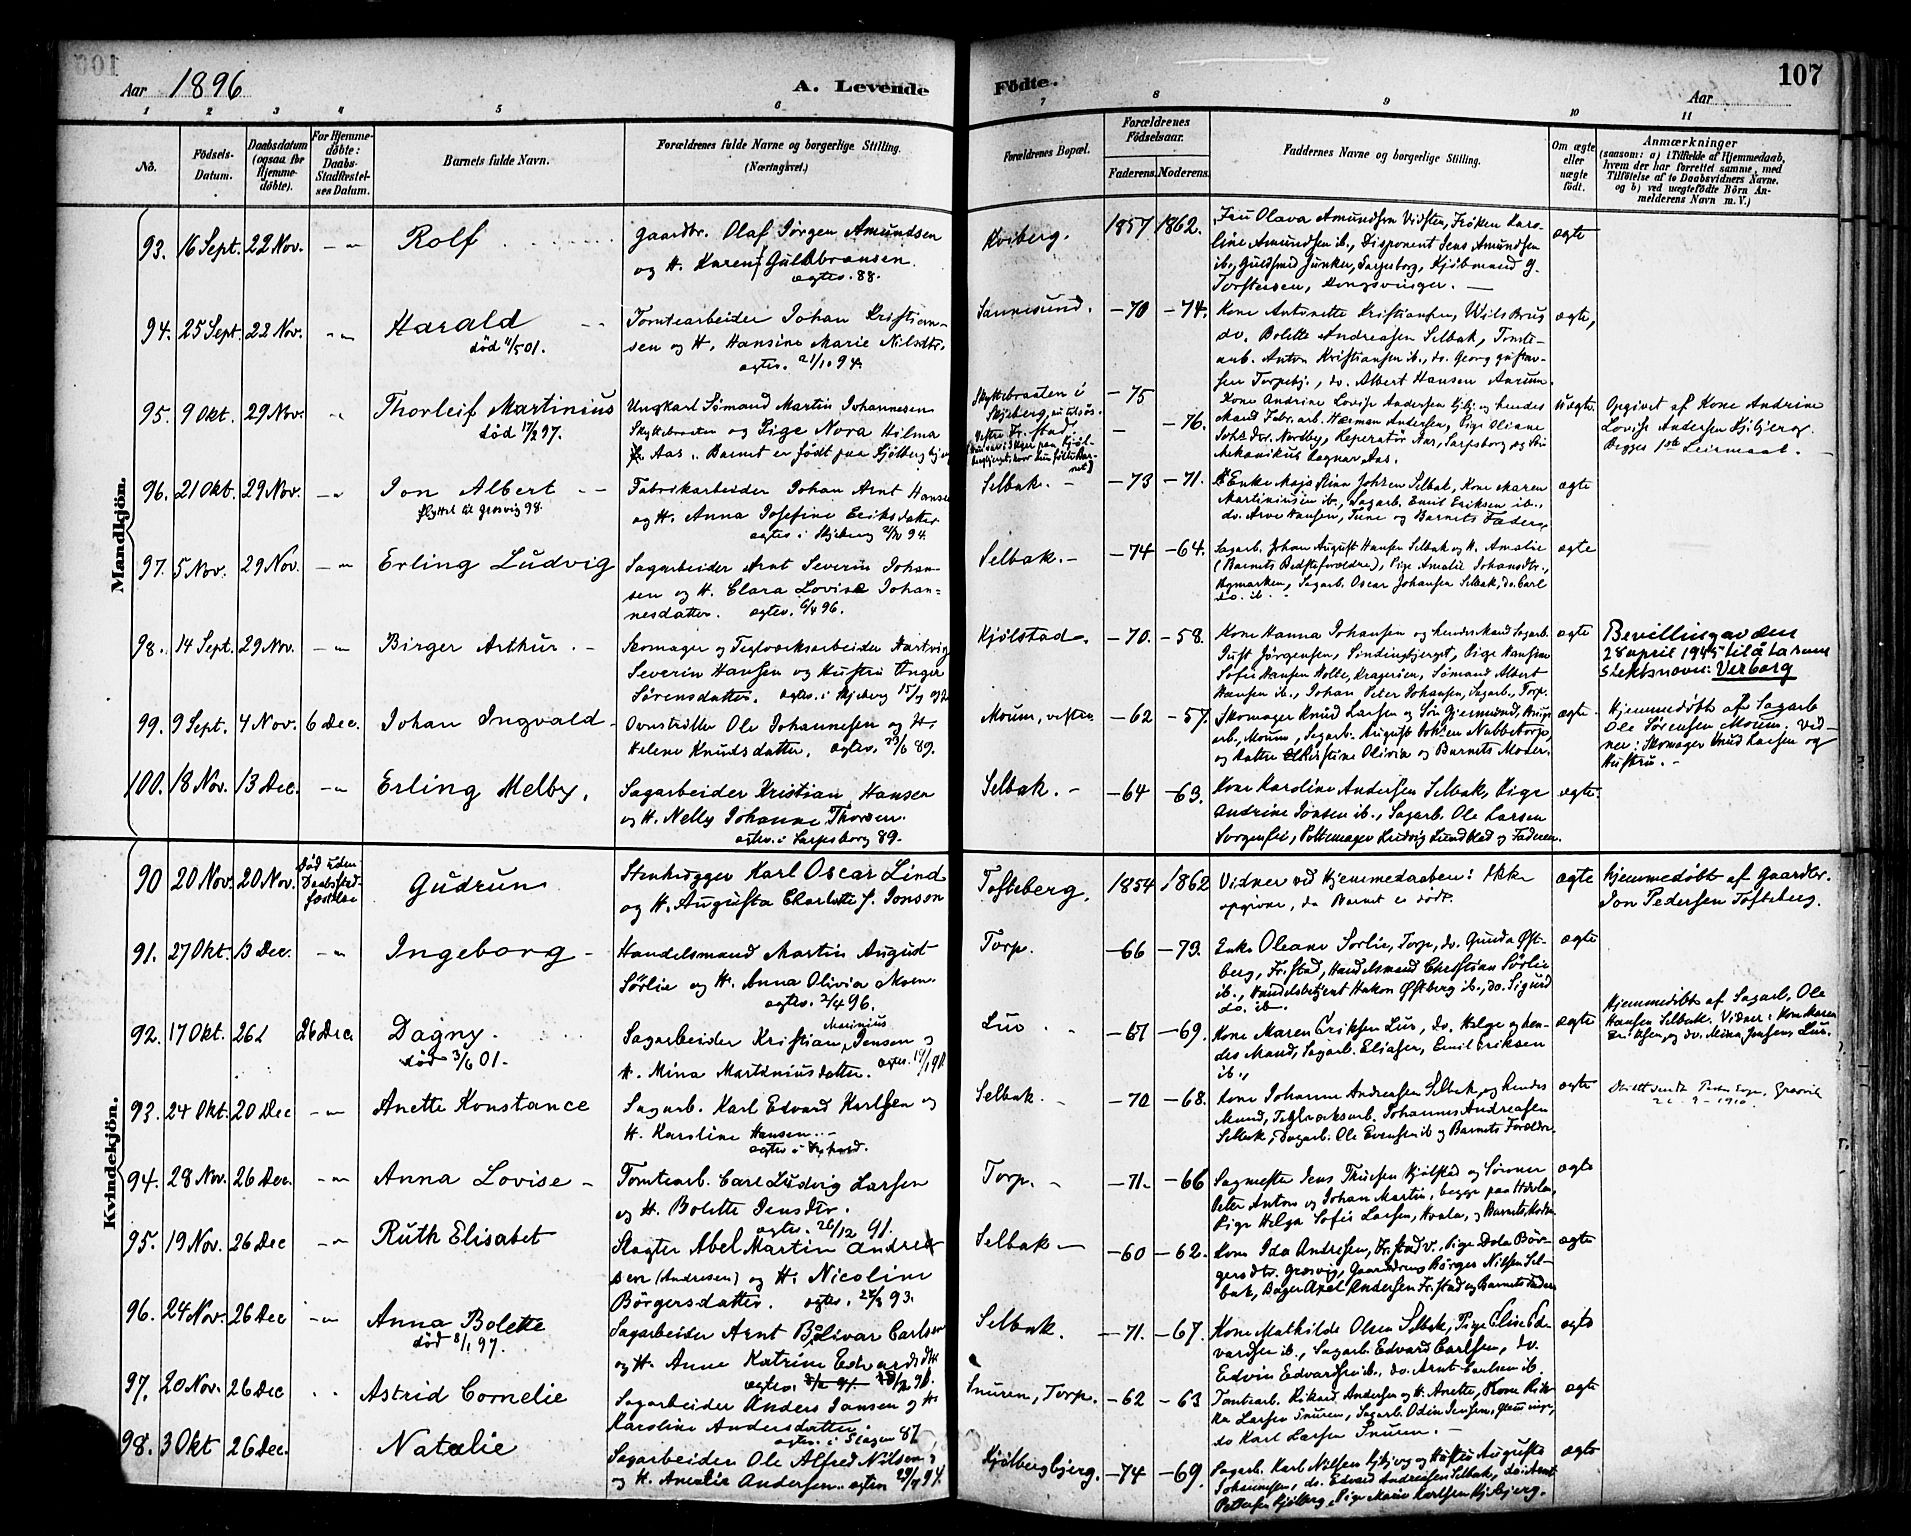 Aar 1896
A. Levende
Födte.
107
Aar
1 2 3 4 5 6 7 8 9 10 11
No.
Födsels-Datum.
Daabsdatum (ogsaa for Hjemme-döbte).
For Hjemme-döbte: Daabs-Stadfæstel-ses Datum.
Barnets fulde Navn.
Forældrenes fulde Navne og borgerlige Stilling.
(Næringsvei.)
Forældrenes Bopæl.
Forældrenes Födselsaar.
Faderens. Moderens.
Faddernes Navne og borgerlige Stilling.
Om ægte eller uægte födt.
Anmærkninger
(saasom: a) i Tilfælde af Hjemmedaab, hvem der har forrettet samme, med Tilföielse af to Daabsvidners Navne. og b) ved uægtefödte Börn An-melderens Navn m. V.)
Mandkjön.
93. 16 Sept. 22 Nov. Rolf
Gaardbr. Olaf Jörgen Amundsen
og H. Karen Gulbransen
ægtev. 88.
Kviberg. 1857 1862.
Fru Olava Amundsen Vidsten, Fröken Karo-
line Amundsen ib., Disponent Jens Amundsen
ib., Junker, Sarpsborg, Kjöbmand G.
Torstensen, Kongsvinger.
ægte
94. 25 Sept. 22 Nov. Harald
död 11/5 01.
Tomtearbeider Johan Kristian-
sen og H. Hansine Marie Nilsdtr.
ægtev. 21/10 94.
Sannesund. -70 -74.
Kone Antonette Kristiansen,
do. Bolette Andreasen Selbak, Tomte-
arb. Anton Kristiansen ib., do. Georg Gustav-
sen Torpebj., do. Albert Hansen Aarum.
ægte,
95. 9 Okt. 29 Nov. Thorleif Martinius
död 17/2 97.
Ungkarl Sömand Martin Johannesen
Skyttebraaten og Pige Nora Hilma
Aas. Barnet er födt paa Kjölbergbjerg
Skyttebraaten i
Skjeberg,
Vestre Fr.stad.
-75
- -76.
Kone Andrine Lovise Andersen Kjbjg og hendes
Mand Fabr.arb. Herman Andersen, Pige Oliane
Nordby, Reperatör Aas, Sarpsborg og
Mekanikus Ragnar Aas.
Uægte.
Opgivet af Kone Andrine
Lovise Andersen Kjbjerg.
Begges 1ste Leiermaal.
96. 21 Okt. 29 Nov. Jon Albert
flyttet til Gresvig 98.
Fabrikarbeider Johan Arnt Hansen
og H. Anna Josefine Eriksdatter
ægtev. i Skjeberg 94.
Selbak. -73 -71.
Enke Maja Stina Johsen Selbak, Kone Maren
Martiniusen ib., Sagarb. Emil Eriksen ib.,
do. Arve Hansen, Tune og Barnets Fader.
ægte
97. 5 Nov. 29 Nov. Erling Ludvig
Sagarbeider Arnt Severin Johan-
sen og H. Clara Lovise Johan-
nesdatter. ægtev. 6/4 96.
Selbak. -74 -64.
Sagarb. Johan August Hansen Selbak og H. Amalie
(Barnets Bedsteforældre), Pige Amalie Johansdtr.,
Nymarken, Sagarb. Oscar Johansen Selbak, do. Carl
do. ib.
ægte
98. 14 Sept. 29 Nov. Birger Arthur.
Skomager og Teglværksarbeider Hartvig
Severin Hansen og Hustru Inger
Sörensdatter. ægtev. i Skjeberg
Kjölstad. -70. -58.
Kone Hanna Johansen og hendes Mand Sagarb.
Just Jörgensen, Lindingbjerget, Pige Hansine
Sofie Hansen Holte, Kragerøen, Sömand Albert
Hansen ib., Johan Peter Johansen, Sagarb., Torp.
ægte
Bevilling av den
28 april 1945 til å ta som
slektsnavn: Verborg
99. 9 Sept. 4 Nov. 6 Dec. Johan Ingvald
Ole Johannesen og H.
Helene Knudsdatter. ægtev. 23/6 89.
Moum, vestre -62 -57.
Skomager Knud Larsen og Sön Gjermund,
arb., Moum, Sagarb. August Johsen Nabbetorp,
og Datter Kristine Olivia og Barnets Moder.
ægte
Hjemmedöbt af Sagarb.
Ole Sörensen Moum. Vid-
ner: Skomager Knud Larsen og
Hustru.
100. 18 Nov. 13 Dec. Erling Melby.
Sagarbeider Kristian Hansen
og H. Nelly Johanne Thorsen.
ægtev. i Sarpsborg 89.
Selbak. -64 -63.
Kone Karoline Andersen Selbak, Pige
Andrine Jonsen ib., Sagarb. Ole Larsen
Sorgenfri, Pottemager Ludvig Lundblad og Faderen.
ægte.
Kvindekjön.
90 20 Nov. 20 Nov. Död uden Daabsstad-fæstelse Gudrun
Stenhugger Karl Oscar Lind
og H. Augusta Charlotte J. Jonson
Tofteberg. 1854 1862
Vidner ved Hjemmedaaben: Ikke
opgivne, da Barnet er dödt.
ægte
Hjemmedöbt af Gaardbr.
Jon Pedersen Tofteberg.
91. 27 Okt. 13 Dec. Ingeborg
Handelsmand Martin August
Sörlie og H. Anna Olivia Moen.
ægtev. 2/4 96.
Torp. -66 -73.
Enke Oleane Sörlie, Torp, do. Gunda Öst-
berg, Fr.stad, Handelsmand Christian Sörlie
ib., Handelsbetjent Hakon Östberg ib., do. Sigurd
do. ib.
ægte
92. 17 Okt. 26 26 Dec Dagny.
död 3/6 01.
Sagarbeider Kristian Marinius Jensen og
H. Mina Martiniusdatter. ægtev.
Lur. -67 -69.
Kone Maren Eriksen Lur, do. Helga og hen-
des Mand, Sagarb. Eliasen, Emil Eriksen
ib.,
ægte
Hjemmedöbt af Sagarb. Ole
Hansen Selbak. Vidner: Kone Maren
Eriksen, og do. Mina Jensen Lur.
93. 24 Okt. 20 Dec Anette Konstance
Sagarb. Karl Edvard Karlsen og
H. Karoline Hansen.
Selbak. -70 -68.
Kone Johanne Andreasen Selbak, og hendes
Mand, Teglværksarb. Johannes Andreasen
Selbak, Sagarb. Ole Evensen ib og Barnets Forældre.
ægte
94. 28 Nov. 26 Dec. Anna Lovise
Tomtearb. Carl Ludvig Larsen
og H. Bolette Jensdtr.
ægtev. 26/12 91.
Torp. -71. -66
Sagmester Jens Thuesen Kjölstad og Sönner
Peter Anton og Johan Martin, begge paa
Pige Helga Sofie Larsen, Hvaler, og Barnets Moder
ægte
95. 19 Nov. 26 Dec Ruth Elisabet
Slagter Abel Martin Andrea
sen (Andresen) og H. Nicoline
Börgersdatter. ægtev. 93.
Selbak -60 -62.
Kone Ida Andresen, Fr.stad v., Pige Dola Bör-
gersdtr. Gresvig, Gaardbrug. Börger Nilsen Sel-
bak, Bager Axel Andersen Fr.stad og Barnets Fader
ægte
96. 24 Nov. 26 Dec Anna Bolette
död 8/1 97.
Sagarbeider Arnt Bolivar Carlsen
og H. Anne Katrine Edvardsdtr
Selbak. -71. -67.
Kone Mathilde Olsen Selbak, Pige Elise Ed-
vardsen ib., Sagarb. Edvard Carlsen, do.
Edvin Edvardsen ib., do. Arnt Carlsen ib.
ægte
97. 20 Nov. 26 Dec Astrid Cornelie
Sagarbeider Anders Jansen og H.
Karoline Andersdatter
ægtev. i Slagen 87
Snuren, Torp. -62 -63
Tomtearb. Rikard Andersen og H. Anette, Kone Rik-
ka Larsen Snuren, Sagarb. Odin Jensen,
do Karl Larsen Snuren.
ægte
98. 3 Okt 26 Dec. Natalie
Sagarbeider Ole Alfred Nilsen
og H. Amalie Andersen. ægtev
Kjölbergbjerg. -74 -69.
Sagarb. Karl Nilsen Kjbjerg og Hustru Augusta
Johannesen, do. Edvard Andreasen Selbak, do. Arnt
Pettersen Kjölberg, Pige Marie Karlsen Kjbjerg.
ægte